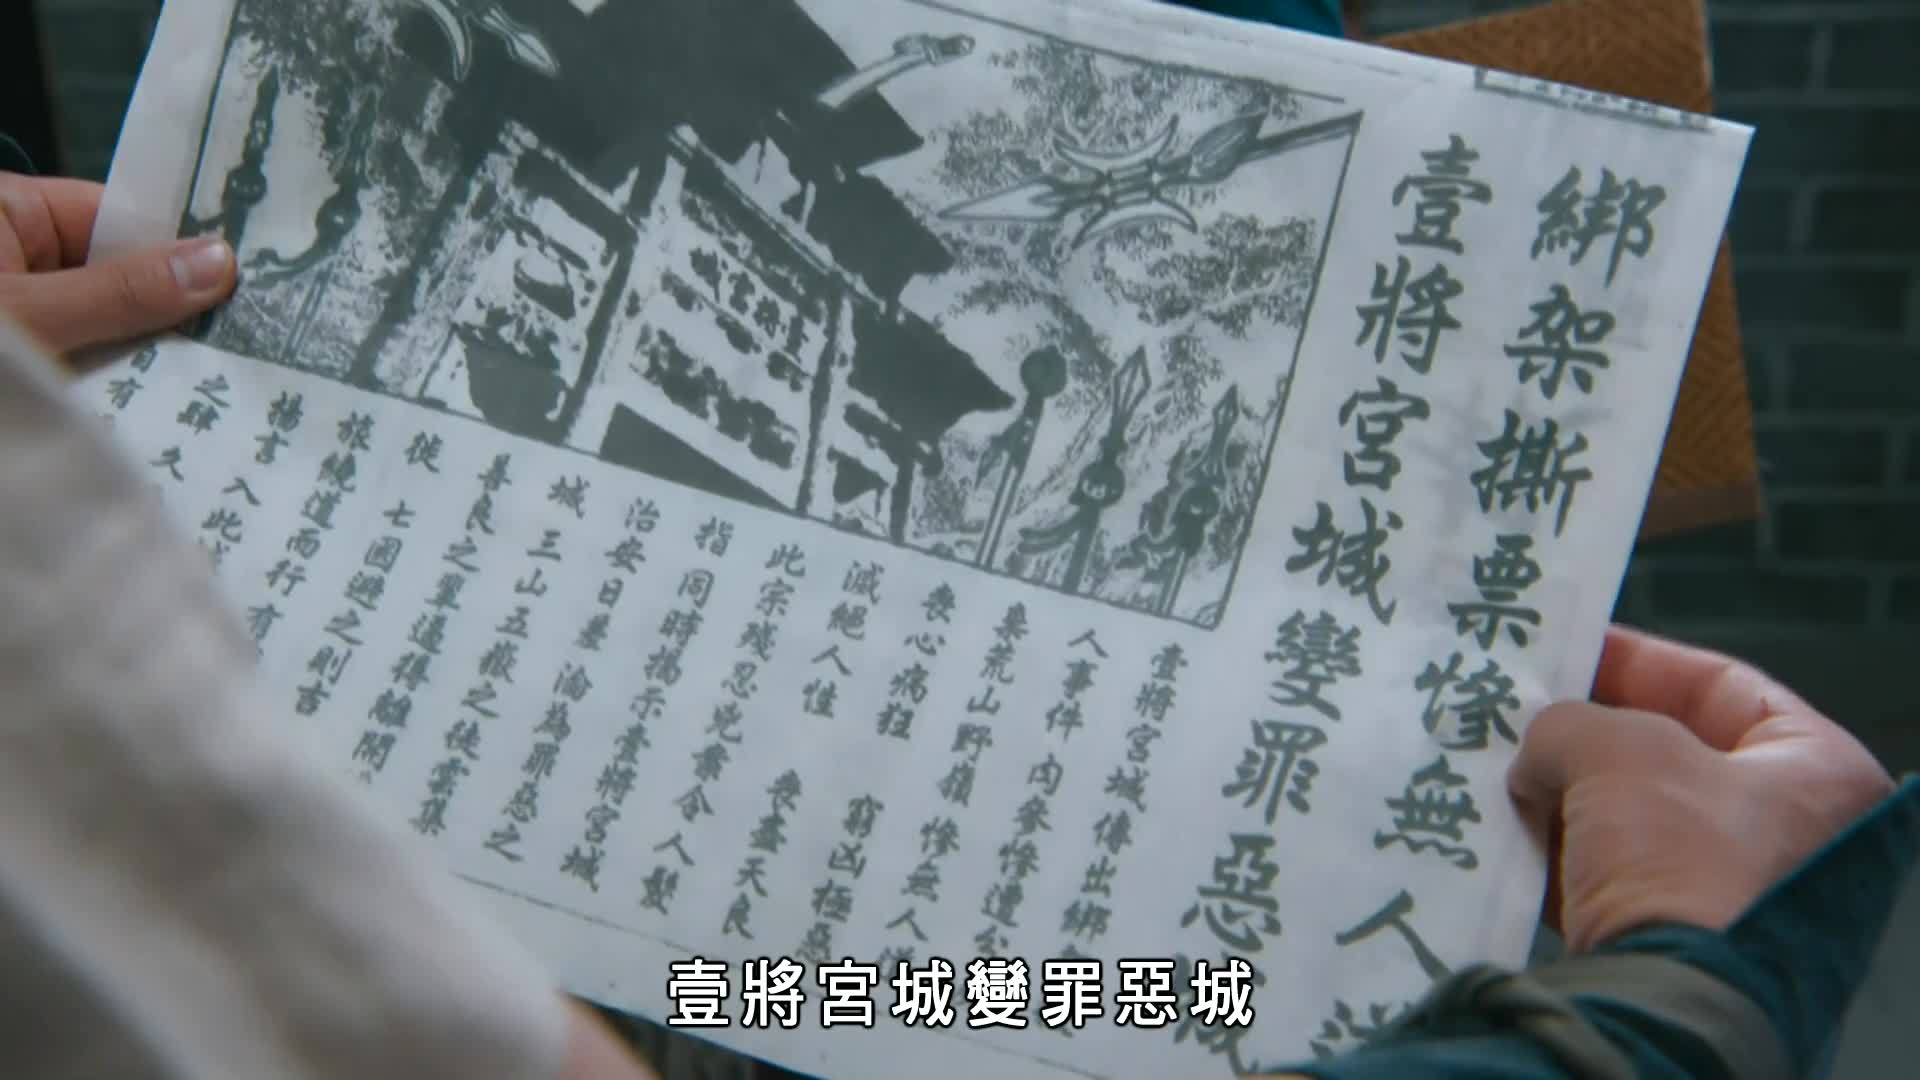 綁架撕票慘無人
壹將宮城變罪惡城
壹將宮城傳出綁
人事件 肉參慘遭
棄荒山野嶺 慘無人
喪心病狂 窮凶極惡
滅絕人性 喪盡天良
此宗殘忍兇案令人髮
指 同時揭示壹將宮城
治安日差 淪為罪惡之
城 三山五嶽之徒雲集
善良之輩逼得離開
徙 七國避之則吉
旅繞道而行 有
揚言 入此城
之肆 久
有
壹將宮城
壹將宮城變罪惡城